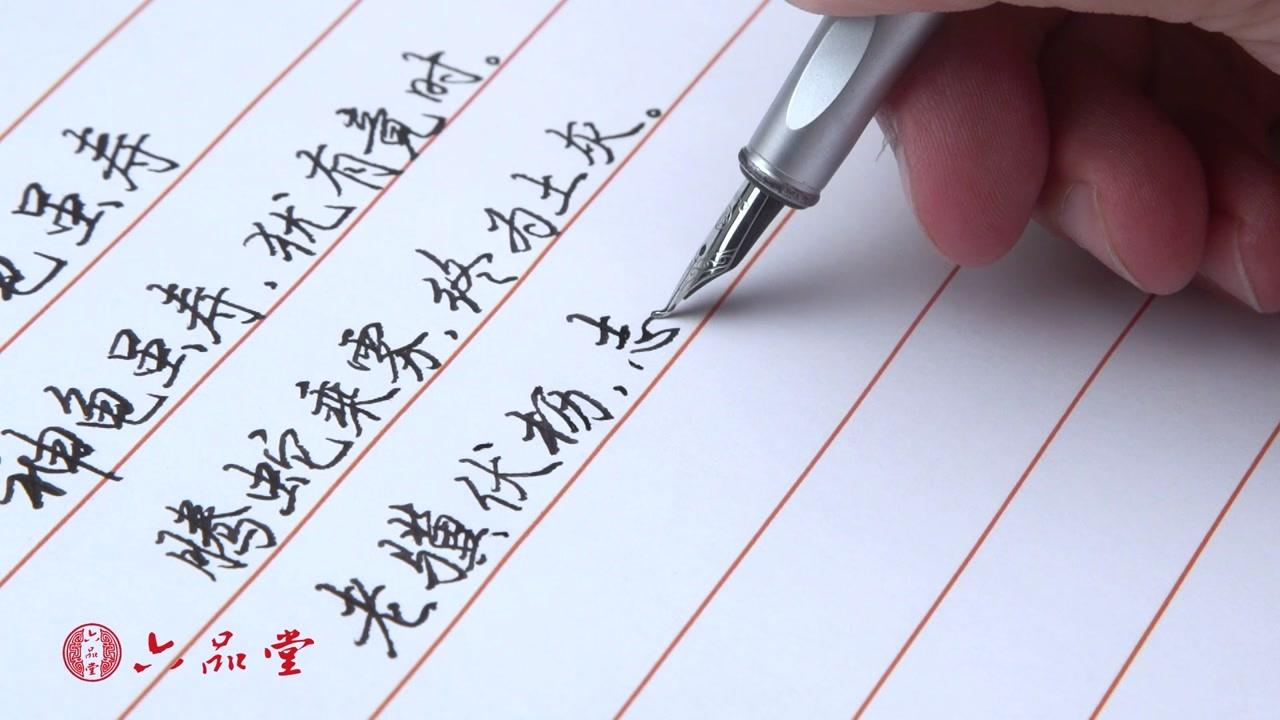 龟虽寿
神龟虽寿、犹有竟时。
腾蛇乘雾、终为土灰。
老骥伏枥、志
六品堂
六品堂